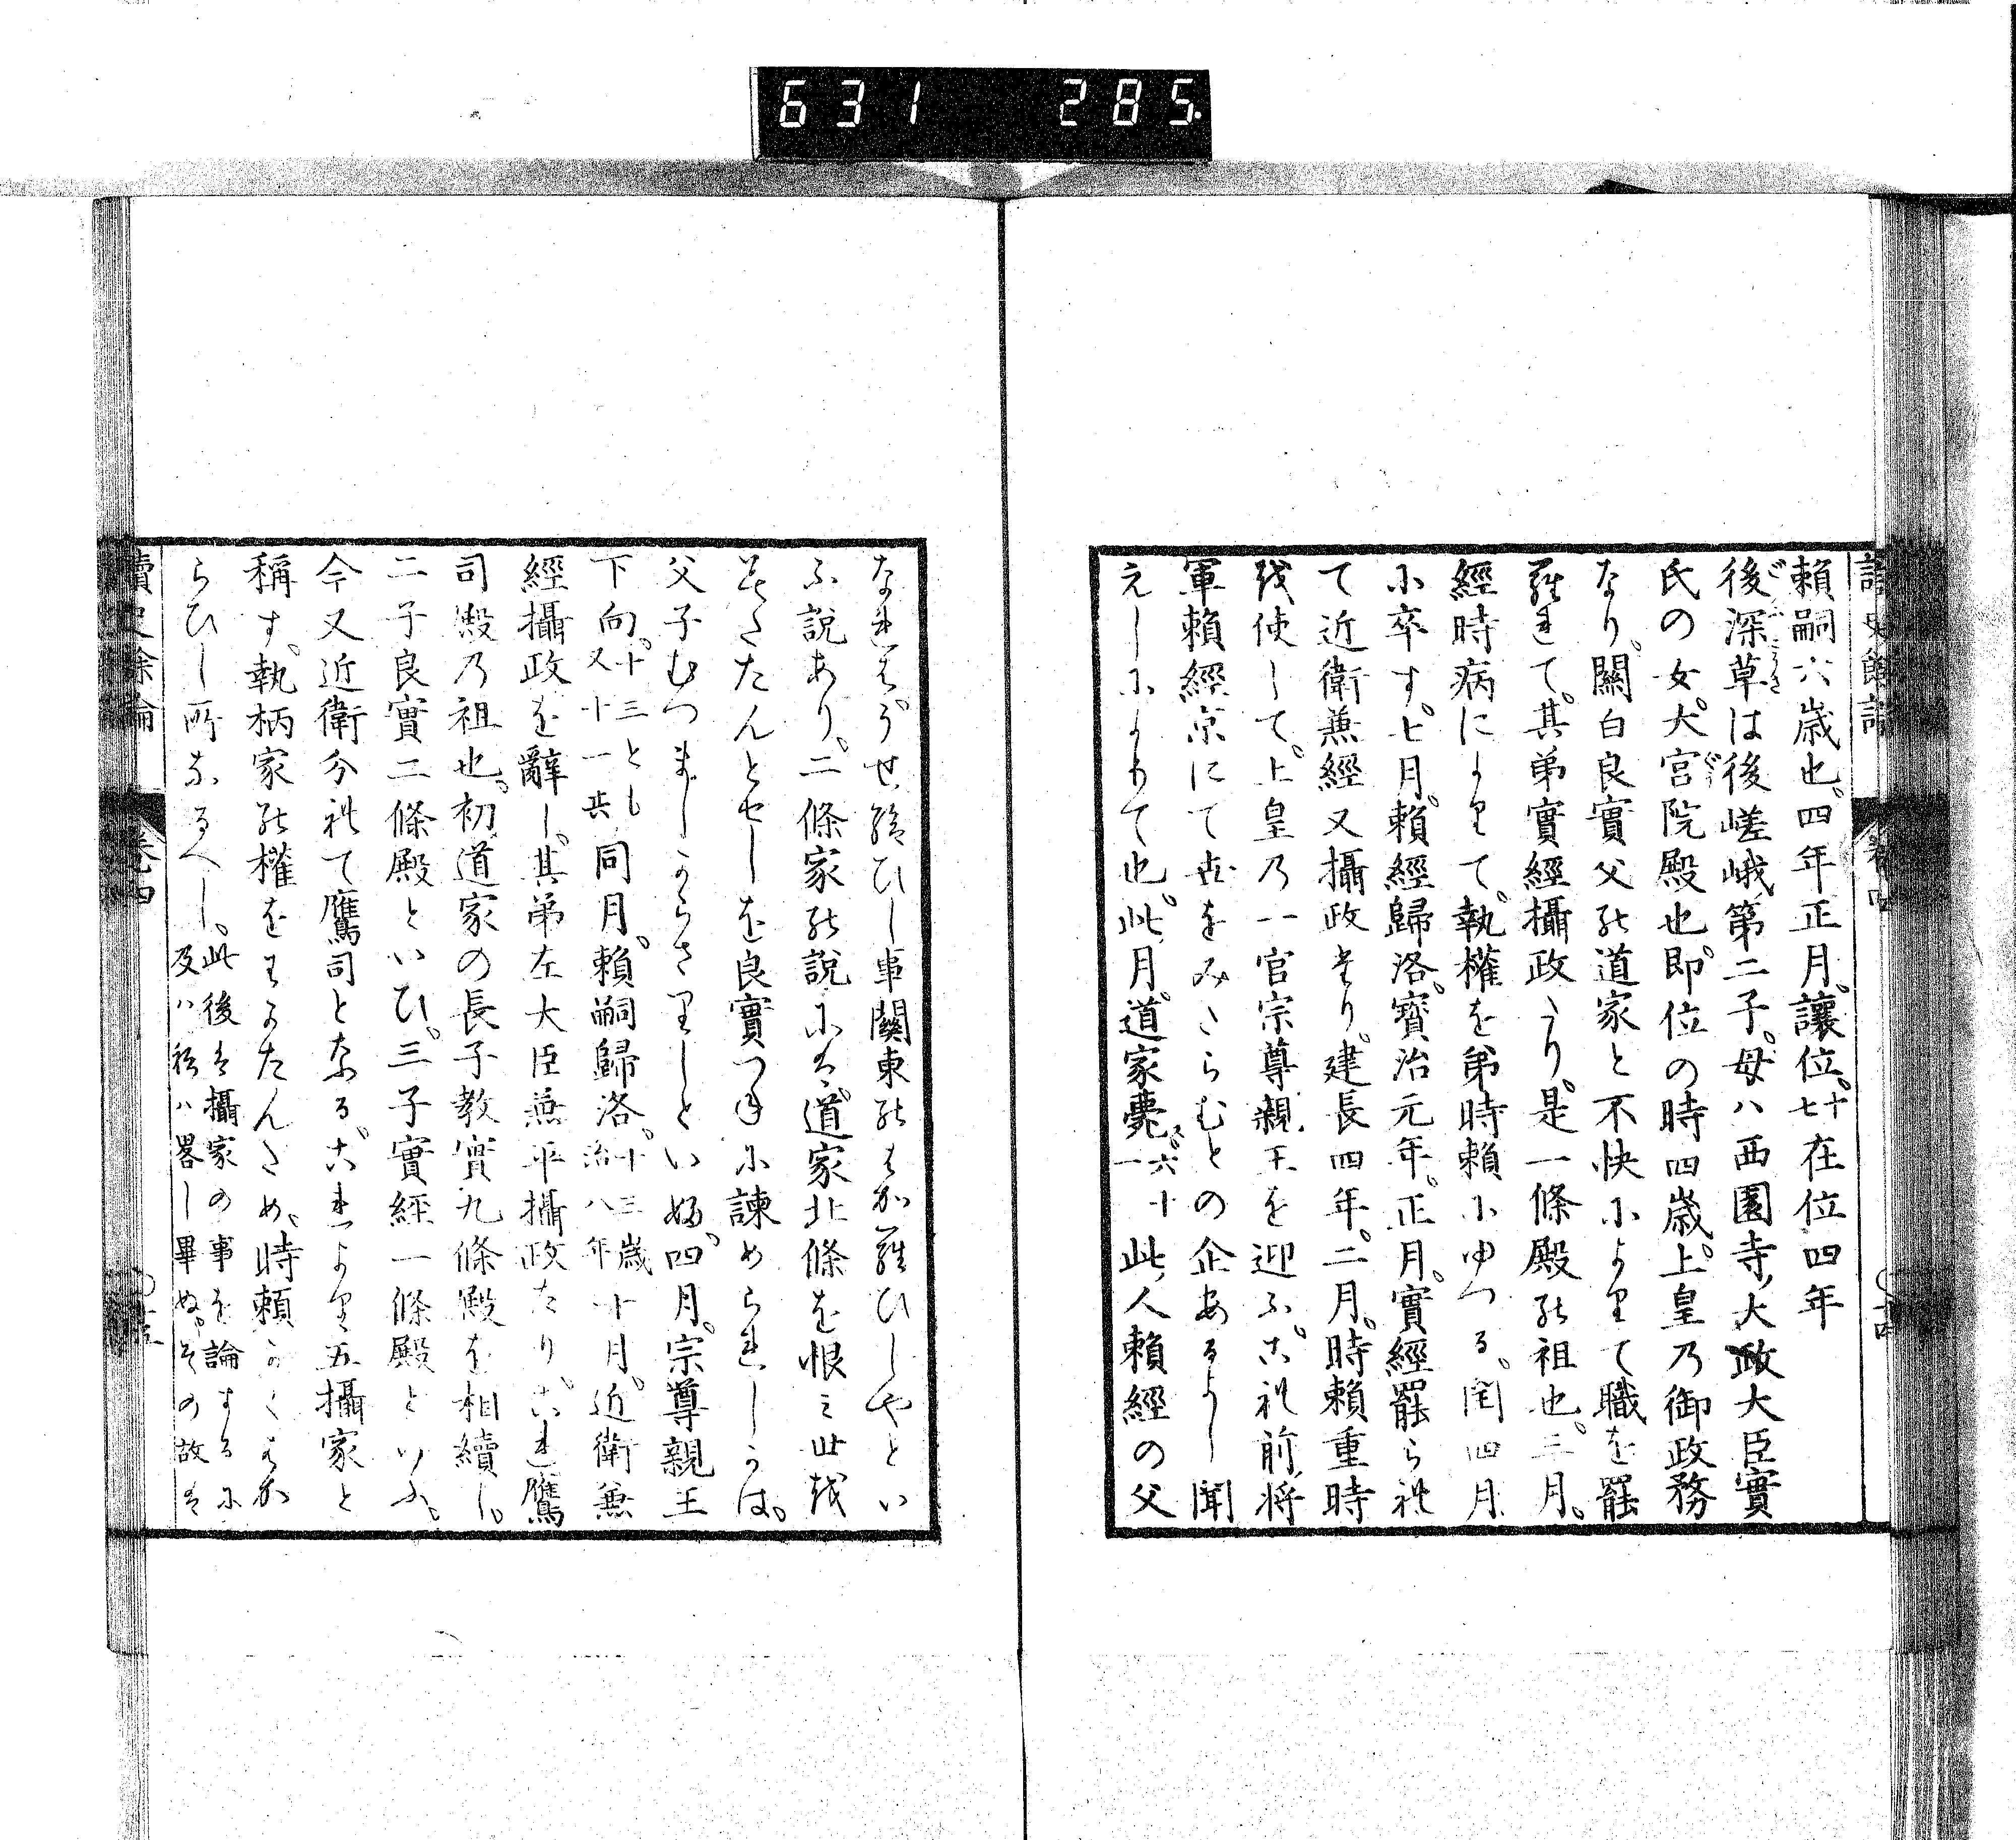 631 285.
讀史餘論 卷四 ○十四
頼嗣六歳也。四年正月。讓位。十七在位四年
後深草は後嵯峨第二子。母ハ西園寺大政大臣實
氏の女。大宮院殿也。即位の時四歳。上皇乃御政務
なり。關白良實父の道家と不快によりて職を罷
られて。其弟實經攝政たり。是一條殿の祖也。三月。
經時病によりて。執權を弟時頼にゆつる。閏四月
に卒す。七月。頼經歸洛。寳治元年。正月。實經罷られ
て近衛兼經又攝政たり。建長四年。二月。時頼重時
を使して。上皇乃一宮宗尊親王を迎ふ。これ前將
軍頼經京にて世をみたらむとの企あるよし聞
えしによりて也。此月。道家薨。六十一此人頼經の父
なれはうせ給ひし事關東のはからひしやとい
ふ説あり。二條家の説には。道家北條を恨み世を
みたさんとせしを良實つねに諫められしかは。
父子むつましからさりしといふ。四月。宗尊親王
下向。十三とも又十一共同月。頼嗣歸洛。十三歳治八年十月。近衛兼
經攝政を辭し。其弟左大臣兼平攝政たり。これ鷹
司殿乃祖也。初道家の長子教實九條殿を相續し。
二子良實二條殿といひ。三子實經一條殿といふ。
今又近衛分れて鷹司となる。これより五攝家と
稱す。執柄家の權をわかたんため。時頼かくはか
らひし所なるへし。此後は攝家の事を論するに及ハ社ハ畧し畢ぬ。その故は
讀史餘論 卷四 ○十五